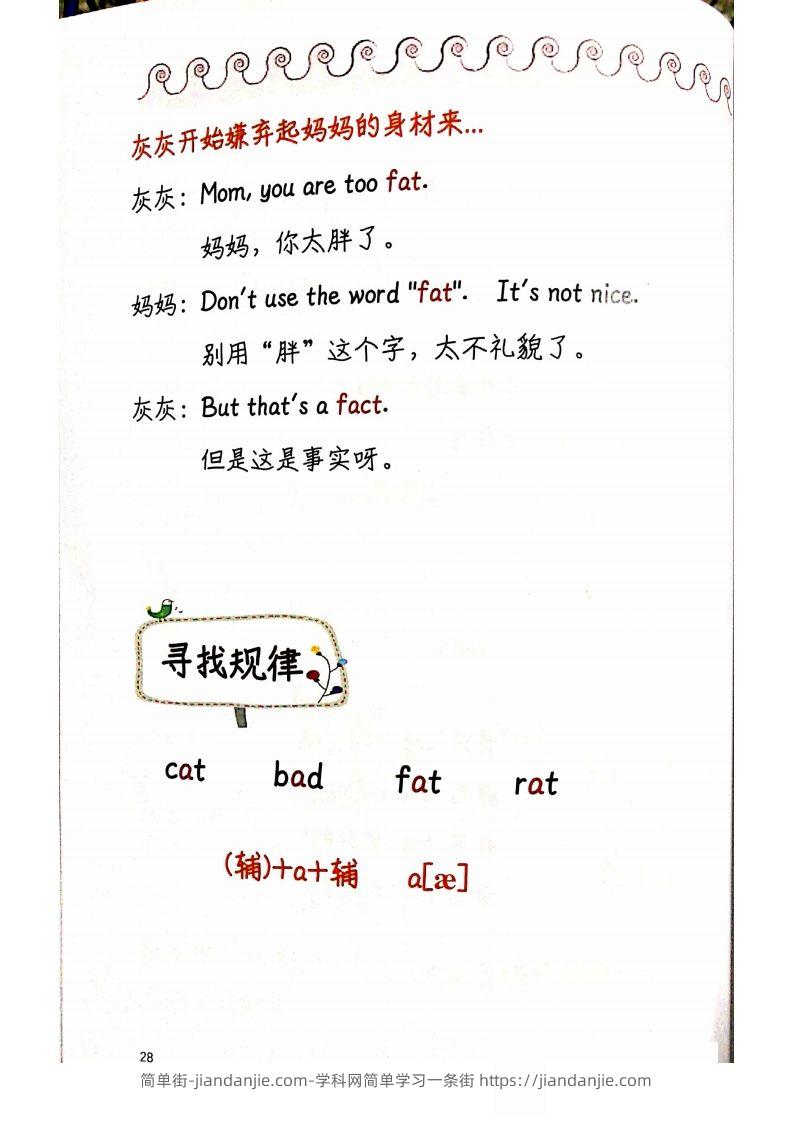 灰灰开始嫌弃起妈妈的身材来...
灰灰：Mom, you are too fat.
妈妈，你太胖了。
妈妈：Don't use the word "fat". It's not nice.
别用“胖”这个字，太不礼貌了。
灰灰：But that's a fact.
但是这是事实呀。
寻找规律
cat bad fat rat
(辅)+a+辅 a[æ]
28
简单街-jiandanjie.com-学科网简单学习一条街 https://jiandanjie.com